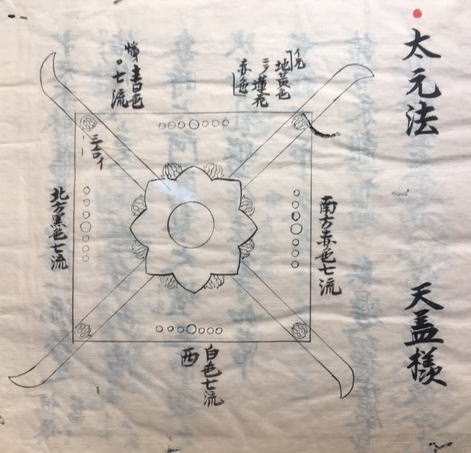 太元法
天蓋様
地黄色
蓮花
赤色
青色
七流
南方赤色七流
白色七流
西
北方黒色七流